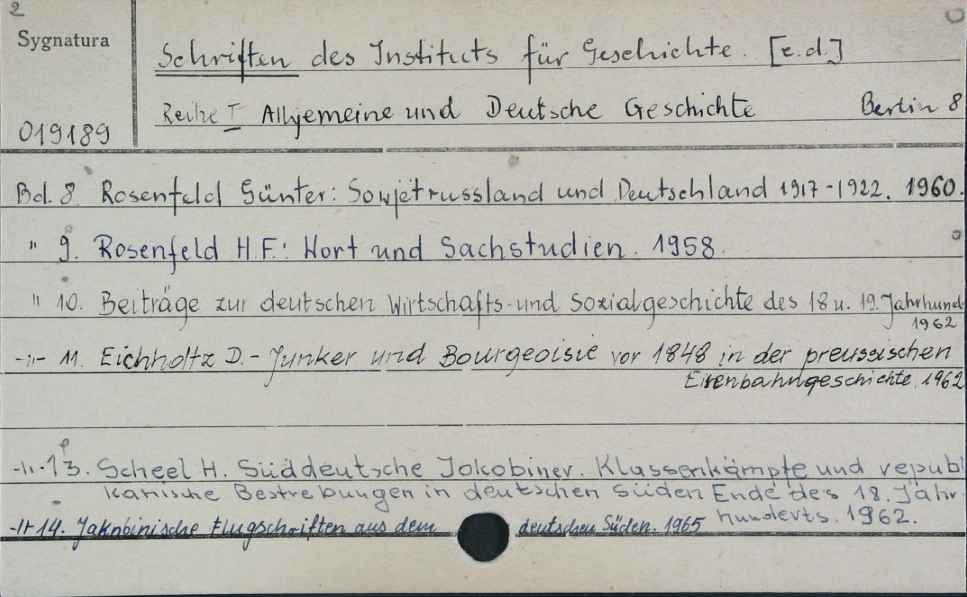 2
Sygnatura
Schriften des Instituts für Geschichte. [e.d.]
Reihe I Allgemeine und Deutsche Geschichte Berlin 8
019189
Bd. 8. Rosenfeld Günter: Sowjetrussland und Deutschland 1917-1922. 1960.
" 9. Rosenfeld H.F.: Wort und Sachstudien. 1958.
" 10. Beiträge zur deutschen Wirtschafts- und Sozialgeschichte des 18 u. 19. Jahrhund
1962
-"- 11. Eichholtz D. - Junker und Bourgeoisie vor 1848 in der preussischen
Eisenbahngeschichte. 1962
-"- 13. Scheel H. Süddeutsche Jokobiner. Klassenkämpfe und republ
kanische Bestrebungen in deutschen Süden Ende des 18. Jahr-
hunderts. 1962.
-"- 14. Jakobinische Flugschriften aus dem deutschen Süden. 1965